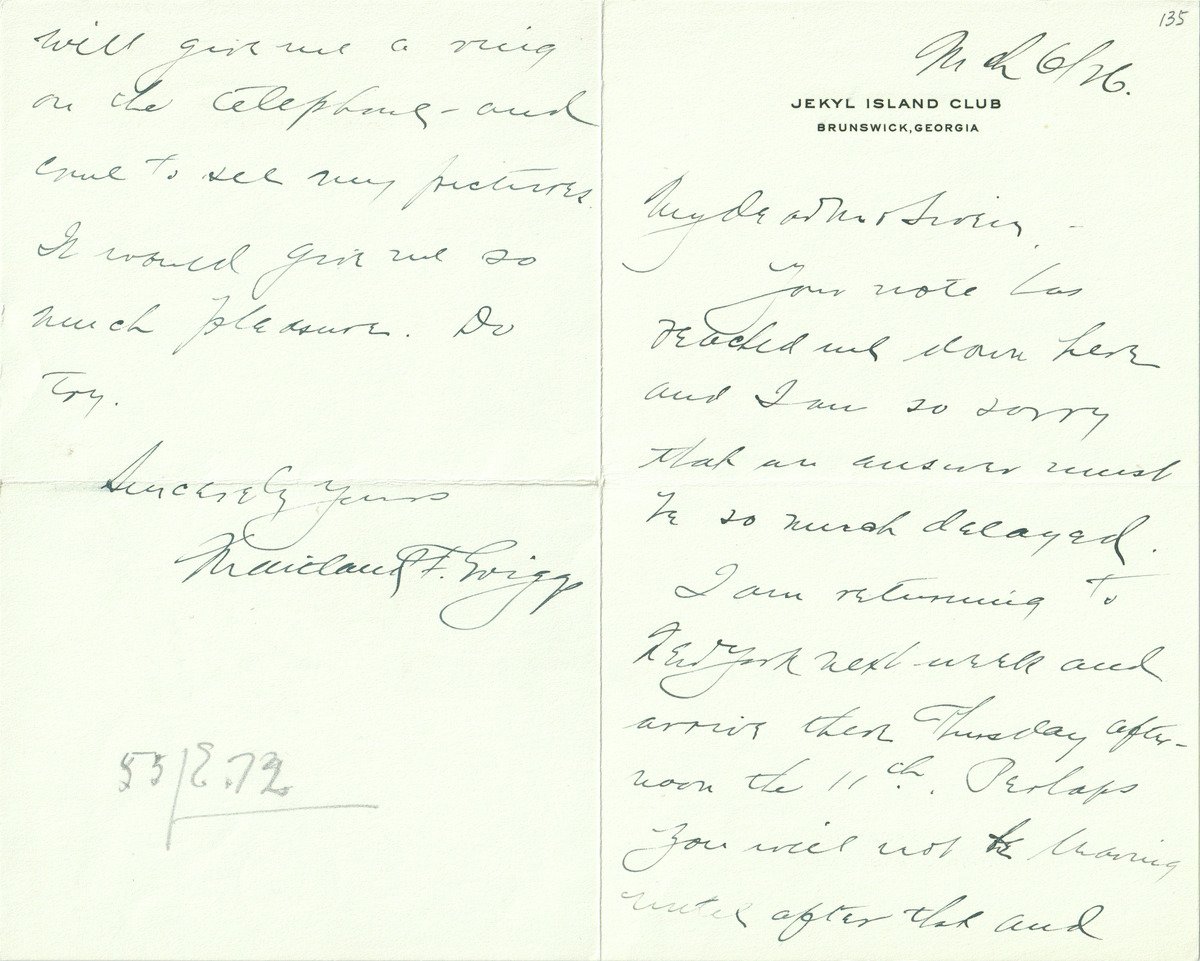 135
Mch 6/26.
JEKYL ISLAND CLUB
BRUNSWICK, GEORGIA
My dear Mr
Your note has
reached me down here
and I am so sorry
that an answer must
be so much delayed.
I am returning to
New York next week and
arrive there Thursday after-
noon the 11th. Perhaps
you will not be leaving
until after that and
will give me a ring
on the telephone - and
come to see my pictures.
It would give me so
much pleasure. Do
try.
Sincerely Yours
Maitland F. Griggs
55/E.72